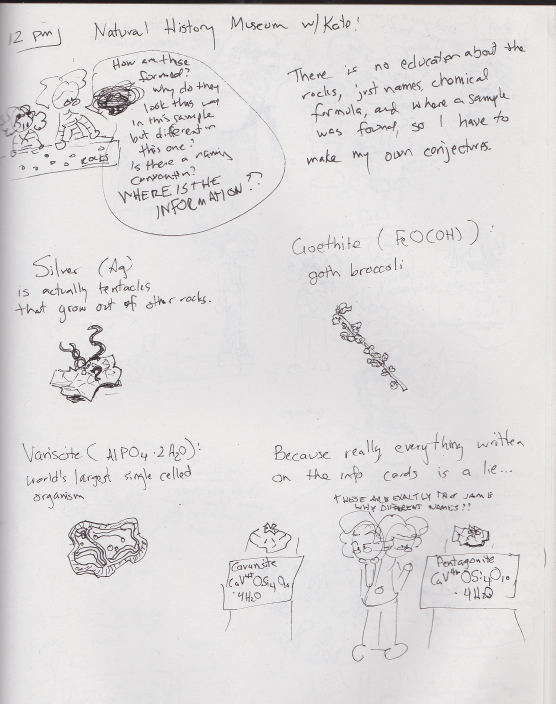 12 pm
Natural History Museum w/ Kato!
How are these
formed?
Why do they
look this way
in this sample
but different in
this one?
Is there a naming
convention?
WHERE IS THE
INFORMATION??
rocks
There is no education about the
rocks, just names, chemical
formula, and where a sample
was found, so I have to
make my own conjectures.
Silver (Ag)
is actually tentacles
that grow out of other rocks.
Goethite (FeO(OH)):
goth broccoli
Variscite (AlPO4·2H2O):
world's largest single celled
organism
Because really everything written
on the info cards is a lie...
THESE ARE EXACTLY THE SAME
WHY DIFFERENT NAMES??
Cavansite
CaV⁴⁺OSi4O10
·4H2O
Pentagonite
CaV⁴⁺OSi4O10
·4H2O